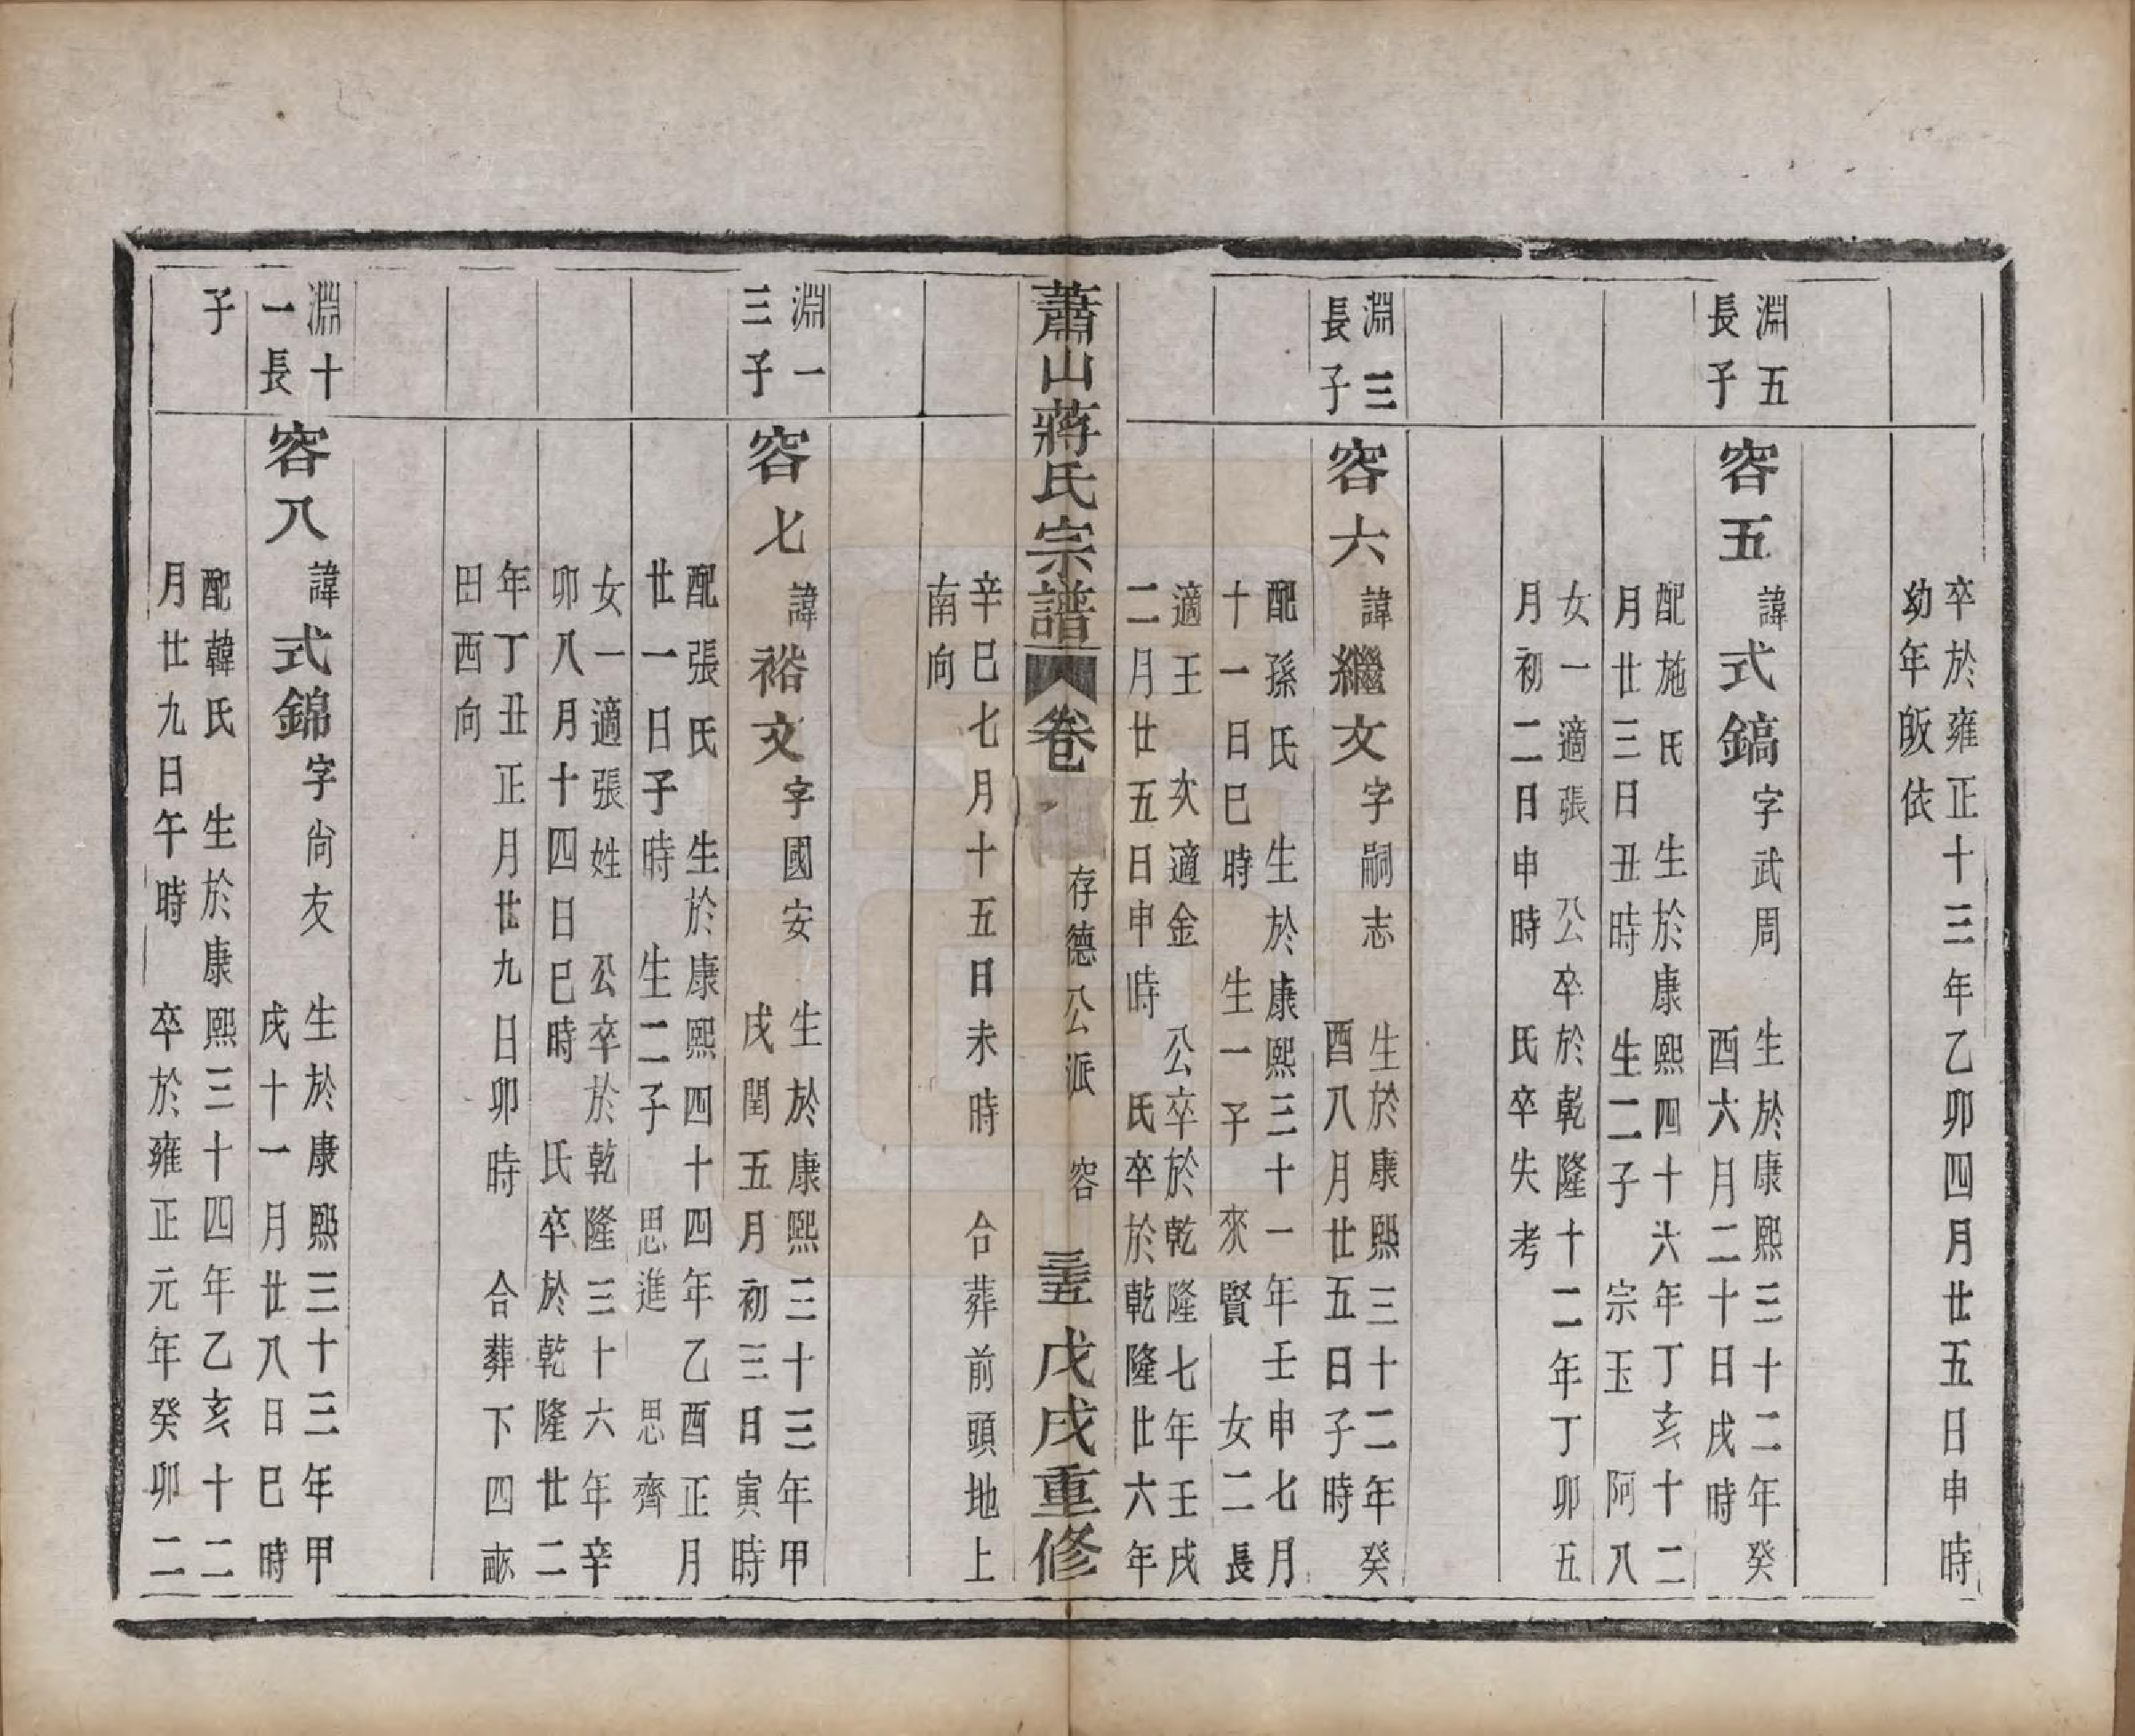 卒於雍正十三年乙卯四月廿五日申時
幼年皈依
淵五
長子
容五
諱式鎬字武周
生於康熙三十二年癸
酉六月二十日戌時
配施氏 生於康熙四十六年丁亥十二
月廿三日丑時 生二子 宗玉 阿八
女一適張 公卒於乾隆十二年丁卯五
月初二日申時 氏卒失考
淵三
長子
容六
諱繼文字嗣志
生於康熙三十二年癸
酉八月廿五日子時
配孫氏 生於康熙三十一年壬申七月
十一日巳時 生一子 來賢 女二長
適王 次適金 公卒於乾隆七年壬戌
二月廿五日申時 氏卒於乾隆廿六年
蕭山蔣氏宗譜 卷 存德公派 容 三五 戊戌重修
辛巳七月十五日未時 合葬前頭地上
南向
淵一
三子
容七
諱裕文字國安
生於康熙三十三年甲
戌閏五月初三日寅時
配張氏 生於康熙四十四年乙酉正月
廿一日子時 生二子 思進 思齊
女一適張姓 公卒於乾隆三十六年辛
卯八月十四日巳時 氏卒於乾隆廿二
年丁丑正月廿九日卯時 合葬下四畝
田西向
淵十
一長
子
容八
諱式錦字尙友
生於康熙三十三年甲
戌十一月廿八日巳時
配韓氏 生於康熙三十四年乙亥十二
月廿九日午時 卒於雍正元年癸卯二